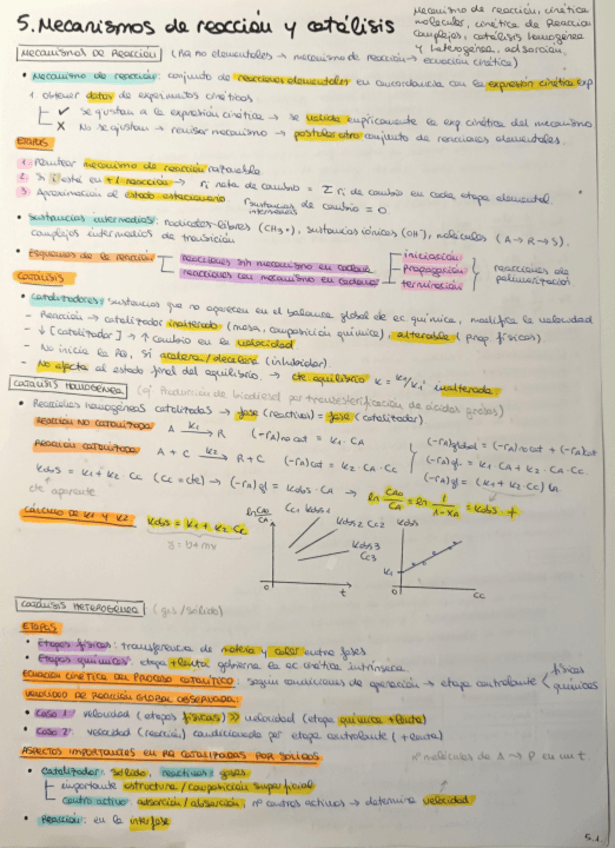 5. Mecanismos de reacción y catálisis
Mecanismo de reacción, cinética
molecular, cinética de Reacción
complejas, catálisis homogénea
y heterogénea, adsorción,
MECANISMOS DE REACCIÓN (RQ no elementales → mecanismo de reacción → ecuación cinética)
• Mecanismo de reacción: conjunto de reacciones elementales en concordancia con la expresión cinética exp
1. obtener datos de experimentos cinéticos
✓ se ajustan a la expresión cinética → se valida empíricamente la exp cinética del mecanismo
X No se ajustan → revisar mecanismo → postular otro conjunto de reacciones elementales.
ETAPAS
1. Plantear mecanismo de reacción razonable
2. Si i está en +1 reacción → ri neta de cambio = Σ ri de cambio en cada etapa elemental.
3. Aproximación al estado estacionario r sustancias intermedias de cambio = 0
• Sustancias intermedias: radicales libres (CH3•), sustancias iónicas (OH-), moléculas (A → R → S).
complejos intermedios de transición
• Esquemas de la reacción
reacciones sin mecanismo en cadena
reacciones con mecanismo en cadena
iniciación
propagación
terminación
reacciones de
polimerización
CATÁLISIS
• Catalizadores: sustancias que no aparecen en el balance global de ec. química, modifica la velocidad
- Reacción → catalizador inalterado (masa, composición química), alterable (prop. físicas)
- ↓[catalizador] → ↑ cambio en la velocidad
- No inicia la RQ, sí acelera/decelera (inhibidor).
- No afecta al estado final del equilibrio. → cte. equilibrio K = K1/K1' inalterada
CATÁLISIS HOMOGÉNEA (ej. Producción de biodiesel por transesterificación de ácidos grasos)
• Reacciones homogéneas catalizadas → fase (reactivos) = fase (catalizador).
REACCIÓN NO CATALIZADA A K1→ R (-rA)no cat = K1 · CA
REACCIÓN CATALIZADA A + C K2→ R + C (-rA)cat = K2 · CA · CC
(-rA)global = (-rA)no cat + (-rA)cat
(-rA)gl. = K1 · CA + K2 · CA · CC
(-rA)gl = (K1 + K2 · CC) CA
Kobs = K1 + K2 CC (CC = cte) → (-rA)gl = Kobs · CA → ln CA0/CA = ln 1/1-XA = Kobs · t
cte aparente
CÁLCULO DE K1 Y K2 Kobs = K1 + K2 · CC
y = b + mx
ln CA0/CA
CC1 Kobs1
Kobs2 CC2
Kobs3
CC3
0
t
Kobs
K1
0
CC
CATÁLISIS HETEROGÉNEA (gas/sólido)
ETAPAS
• Etapas físicas: transferencia de materia y calor entre fases
• Etapas químicas: etapa + lenta gobierna la ec cinética intrínseca.
ECUACIÓN CINÉTICA DEL PROCESO CATALÍTICO: según condiciones de operación → etapa controlante < físicas
químicas
VELOCIDAD DE REACCIÓN GLOBAL OBSERVADA:
• Caso 1: velocidad (etapas físicas) >> velocidad (etapa química + lenta)
• Caso 2: velocidad (reacción) condicionada por etapa controlante (+ lenta)
ASPECTOS IMPORTANTES EN RQ CATALIZADAS POR SÓLIDOS
nº moléculas de A → P en un t.
• Catalizador: sólido, reactivos: gases.
importante estructura / composición superficial
centro activo: adsorción / absorción, nº centros activos → determina velocidad
• Reacción: en la interfase
5.1.